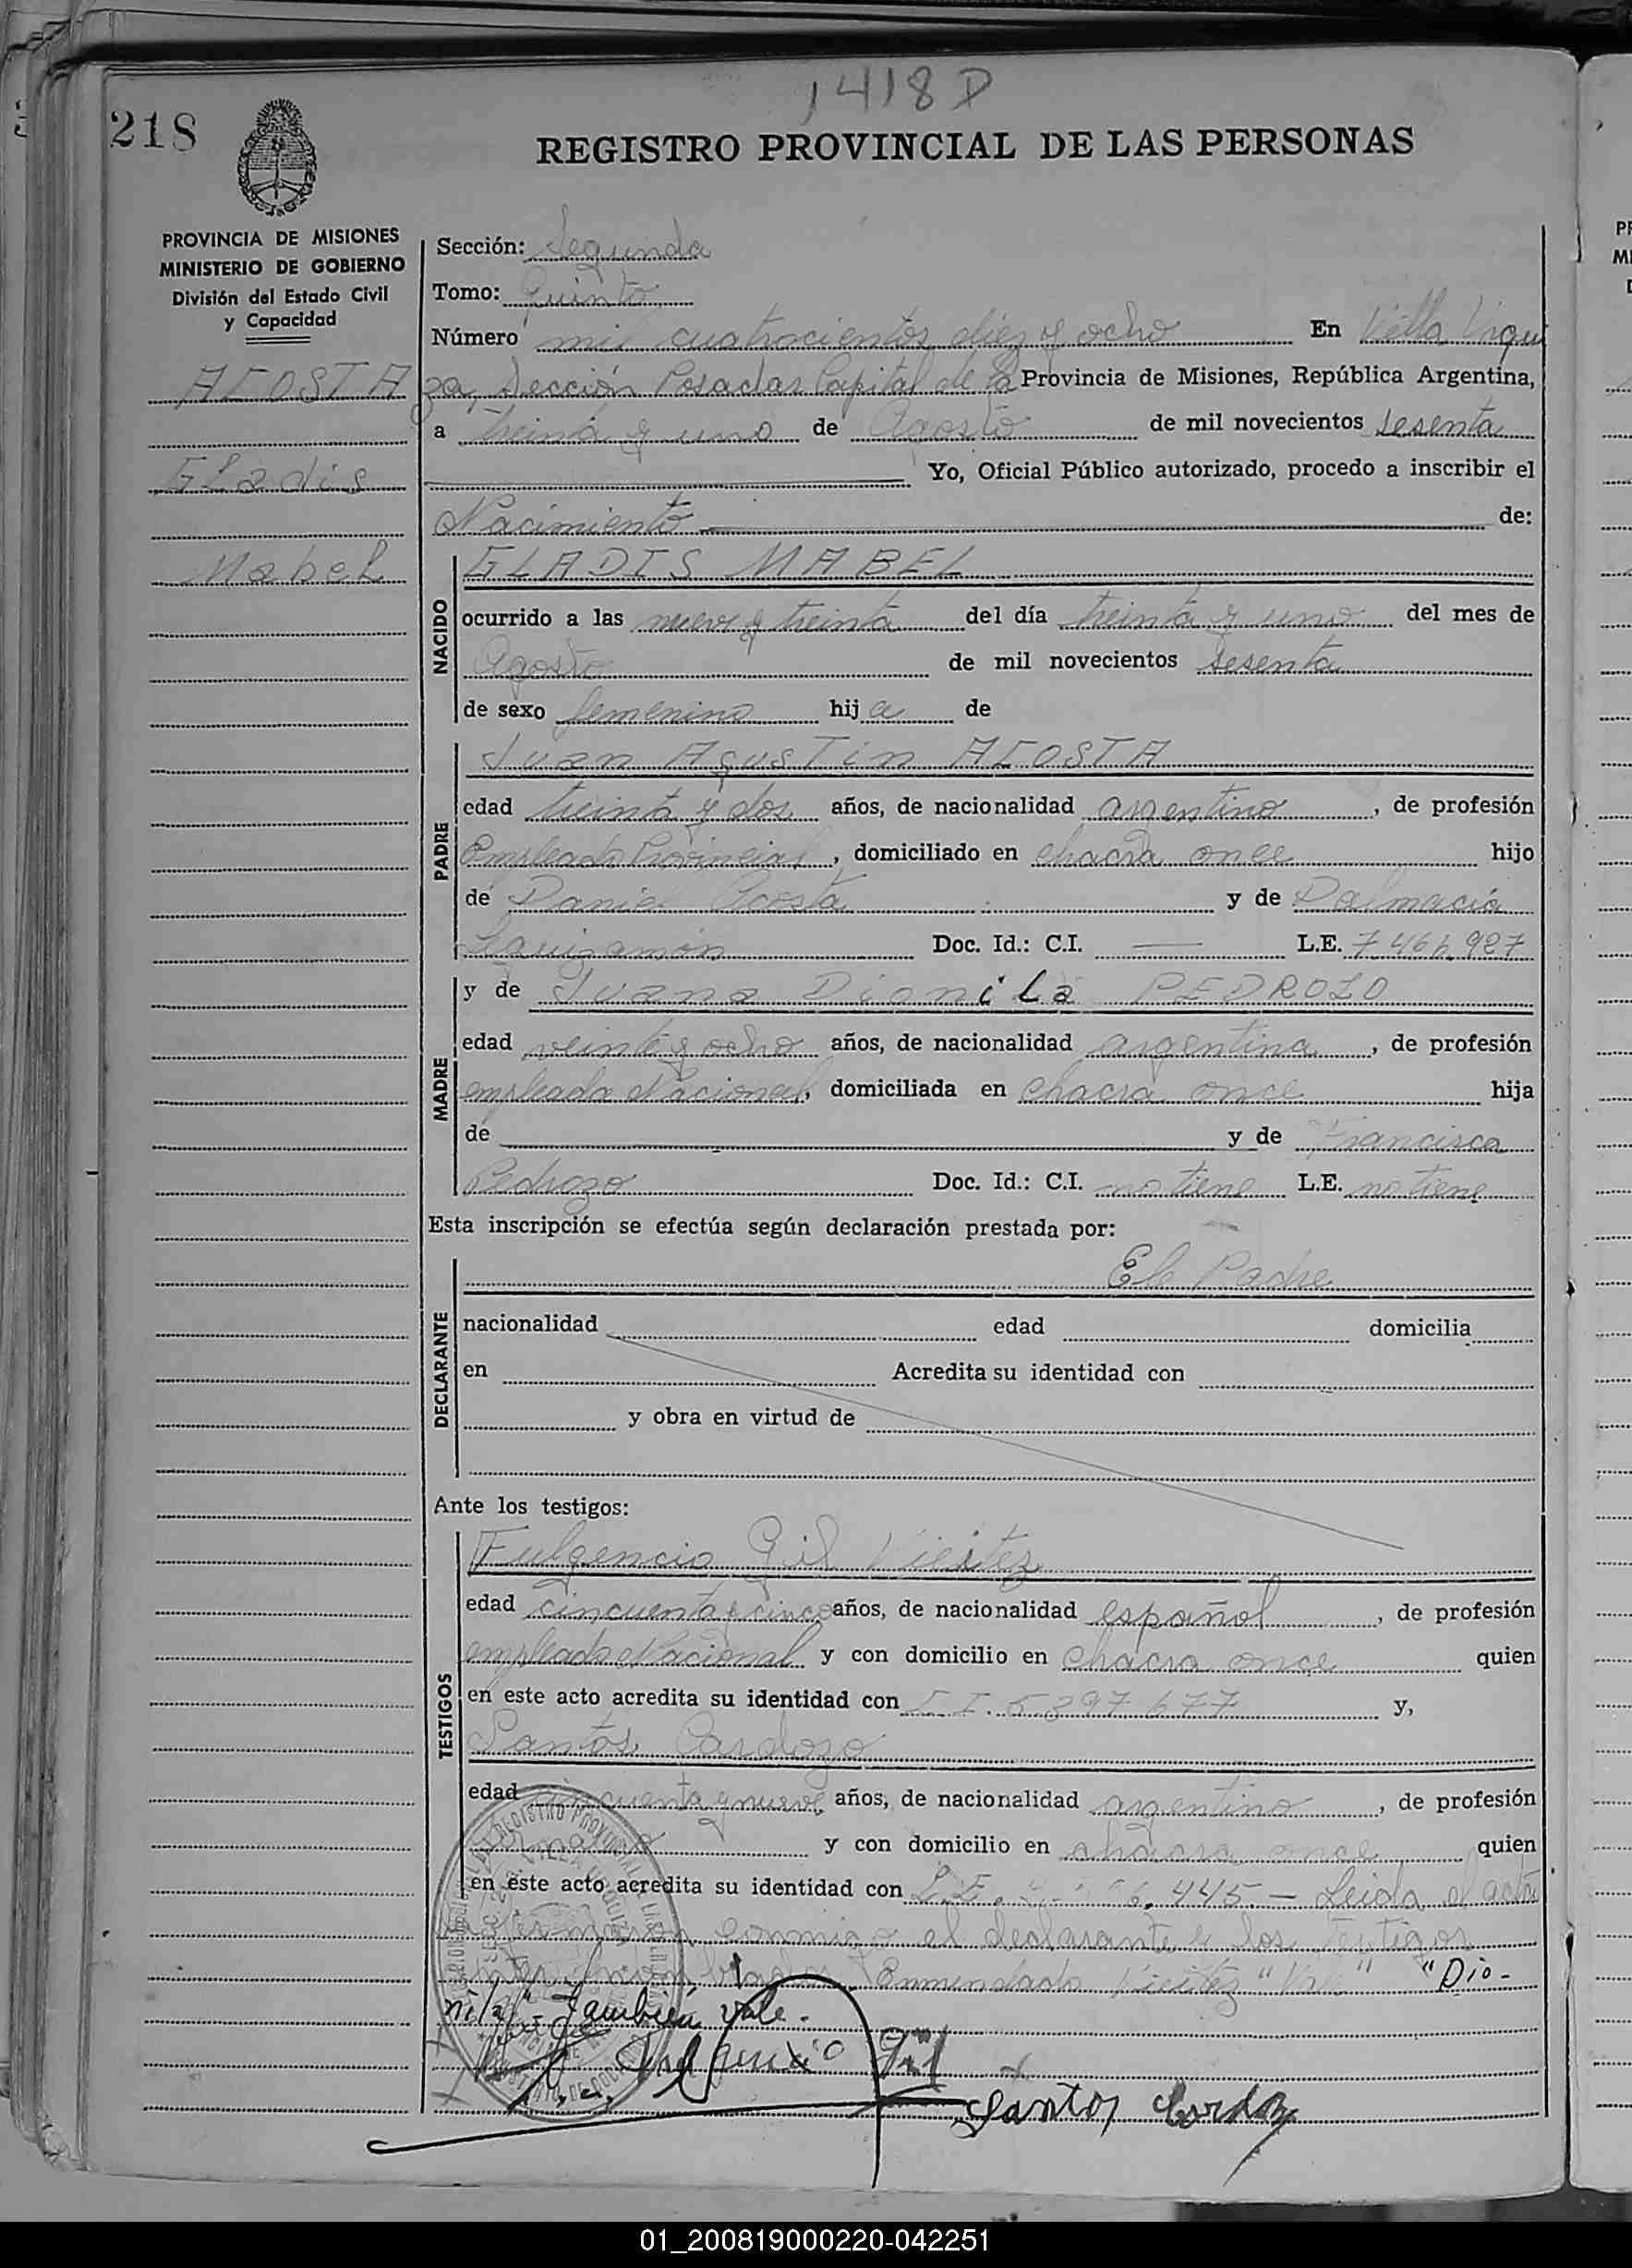 1418 D
218
REGISTRO PROVINCIAL DE LAS PERSONAS
PROVINCIA DE MISIONES
MINISTERIO DE GOBIERNO
División del Estado Civil
y Capacidad
ACOSTA
Gladis
Mabel
Sección: Segunda
Tomo: Quinto
Número mil cuatrocientos diez y ocho En Villa Urqui
za, Sección Posadas Capital de la Provincia de Misiones, República Argentina,
a treinta y uno de Agosto de mil novecientos sesenta
Yo, Oficial Público autorizado, procedo a inscribir el
Nacimiento de:
NACIDO
GLADIS MABEL
ocurrido a las nueve y treinta del día treinta y uno del mes de
Agosto de mil novecientos sesenta
de sexo femenino hija de
PADRE
Juan Agustin ACOSTA
edad treinta y dos años, de nacionalidad argentino, de profesión
Empleado Provincial, domiciliado en chacra once hijo
de Daniel Acosta y de Dalmacia
Doc. Id.: C.I. — L.E. 7.466.927
MADRE
y de Juana Dionila PEDROZO
edad veinte y ocho años, de nacionalidad argentina, de profesión
empleada Nacional, domiciliada en chacra once hija
de y de Francisca
Pedrozo Doc. Id.: C.I. no tiene L.E. no tiene
Esta inscripción se efectúa según declaración prestada por:
DECLARANTE
El Padre
nacionalidad edad domicilia
en Acredita su identidad con
y obra en virtud de
Ante los testigos:
TESTIGOS
Fulgencio Gil Vieitez
edad cincuenta y cinco años, de nacionalidad español, de profesión
empleado Nacional y con domicilio en chacra once quien
en este acto acredita su identidad con C.I. 5.397.677 y,
Santos Cardozo
edad cincuenta y nueve años, de nacionalidad argentino, de profesión
y con domicilio en chacra once quien
en este acto acredita su identidad con L.E. 445.- Leida el acta
la firman conmigo el declarante y los testigos
Enmendado Vieitez "Vale" "Dio-
nila" También vale.
Fulgencio Gil
Santos Cardozo
01_200819000220-042251